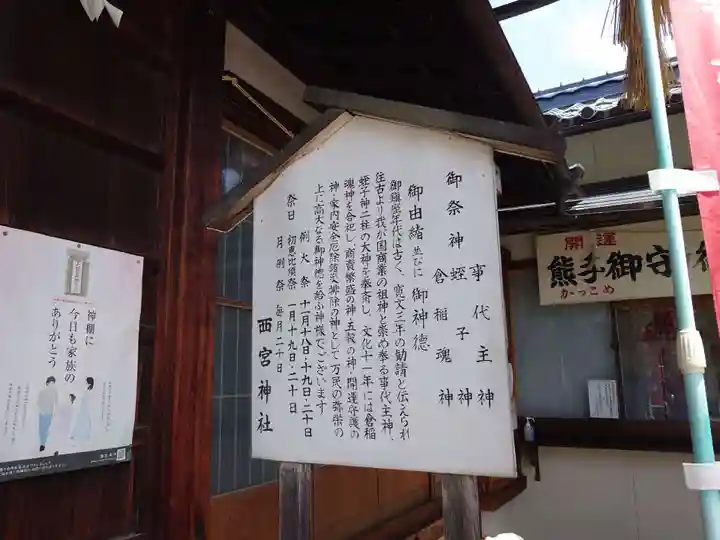 御祭神 事代主神
蛭子神
倉稲魂神
御由緒 並びに 御神徳
御鎮座年代は古く、寛文三年の勧請と伝えられ
往古より我が国商業の祖神と崇め奉る事代主神、
蛭子神二柱の大神を奉斎し、文化十一年には倉稲
魂神を合祀し、商売繁盛の神・五穀の神・開運守護の
神・家内安全厄除諸災排除の神として万民の弥栄の
上に高大なる御神徳を給ふ神様でございます
祭日 例大祭 十一月十八日・十九日・二十日
初恵比須祭 一月十九日・二十日
月例祭 毎月二十日
西宮神社
神棚に
今日も家族の
ありがとう
開運
熊手御守
かっこめ